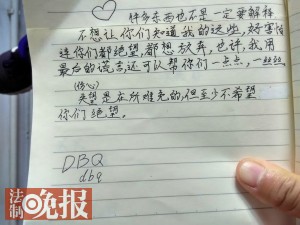 许多东西也不是一定要解释
不想让你们知道我的这些,好害怕
连你们都绝望,都想放弃,也许,我用
最后的谎言还可以帮你们一点点,一丝丝
(伤心)
失望是在所难免的,但至少不希望
你们绝望。
DBQ
dbq
法制晚报